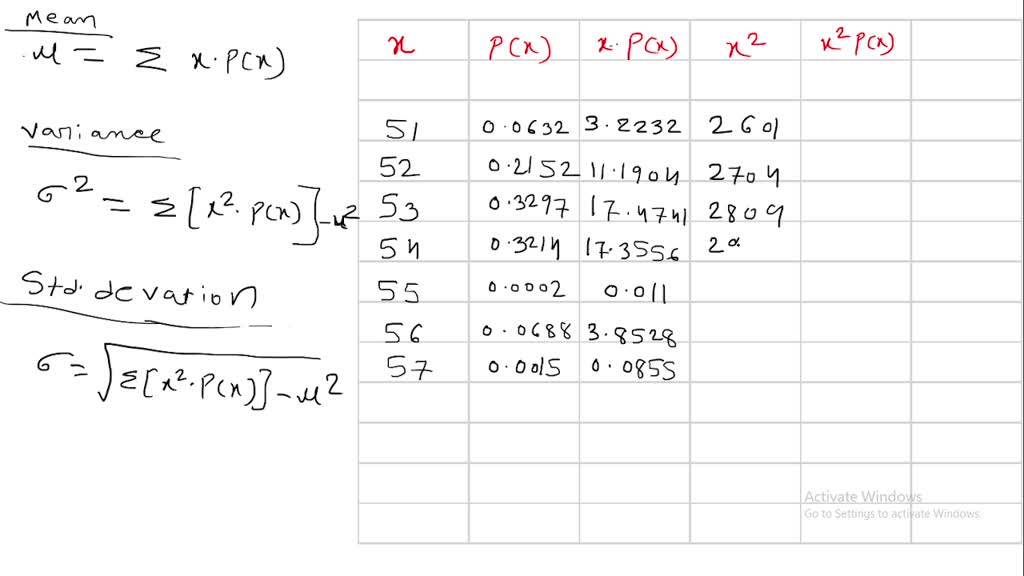 Mean
μ = Σ x·P(x)
Variance
σ² = Σ[x²·P(x)]-μ²
Std. devation
σ = √Σ[x²·P(x)]-μ²
x P(x) x·P(x) x² x²P(x)
51 0.0632 3.2232 2601
52 0.2152 11.1904 2704
53 0.3297 17.4741 2809
54 0.3214 17.3556 2
55 0.0002 0.011
56 0.0688 3.8528
57 0.0015 0.0855
Activate Windows
Go to Settings to activate Windows.